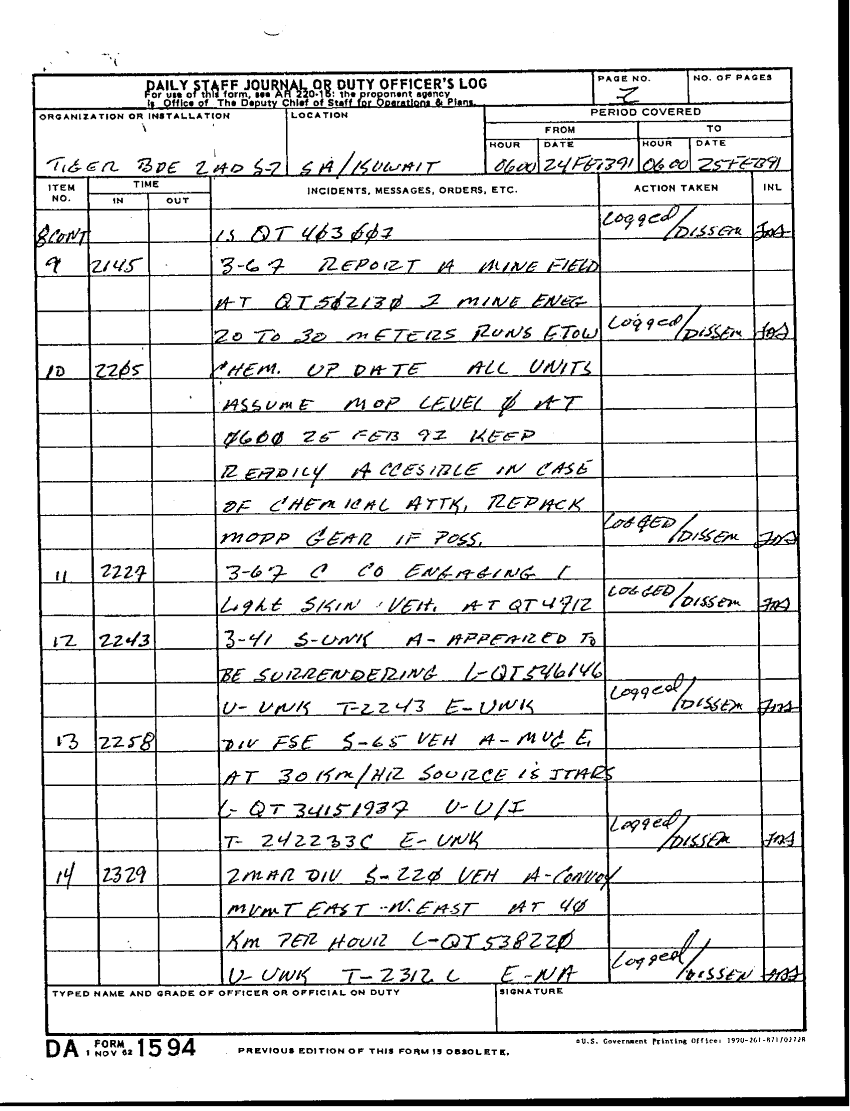 DAILY STAFF JOURNAL OR DUTY OFFICER'S LOG
For use of this form, see AR 220-15: the proponent agency
is Office of The Deputy Chief of Staff for Operations & Plans.
PAGE NO.
2
NO. OF PAGES
ORGANIZATION OR INSTALLATION
TIGER BDE 2AD S-2
LOCATION
SA/KUWAIT
PERIOD COVERED
FROM TO
HOUR DATE HOUR DATE
0600 24FEB91 0600 25FEB91
ITEM NO. TIME INCIDENTS, MESSAGES, ORDERS, ETC. ACTION TAKEN INL
IN OUT
8CONT IS QT 403007 Logged/DISSEM
9 2145 3-67 REPORT A MINE FIELD
AT QT502130 2 MINE ENEG
20 TO 30 METERS RUNS ETOW Logged/DISSEM
10 2205 CHEM. UP DATE ALL UNITS
ASSUME MOP LEVEL 0 AT
0600 25 FEB 92 KEEP
READILY ACCESIBLE IN CASE
OF CHEMICAL ATTK, REPACK
MOPP GEAR IF POSS. LOGGED/DISSEM
11 2227 3-67 C CO ENGAGING 1
Light SKIN VEH. AT QT4912 LOGGED/DISSEM
12 2243 3-41 S-UNK A- APPEARED TO
BE SURRENDERING L-QT546146
U- UNK T-2243 E-UNK Logged/DISSEM
13 2258 DIV FSE S-65 VEH A-MVG E,
AT 30 Km/HR SOURCE is JTARS
L- QT 34151937 U-U/I
T- 242233C E- UNK Logged/DISSEM
14 2329 2MAR DIV S-220 VEH A-Convoy
MVMT EAST-N.EAST AT 40
Km PER HOUR L-QT538220
U- UNK T-2312 L E-NA Logged/DISSEN
TYPED NAME AND GRADE OF OFFICER OR OFFICIAL ON DUTY
SIGNATURE
DA FORM 1 NOV 62 1594
PREVIOUS EDITION OF THIS FORM IS OBSOLETE.
*U.S. Government Printing Office: 1990-261-871/02728